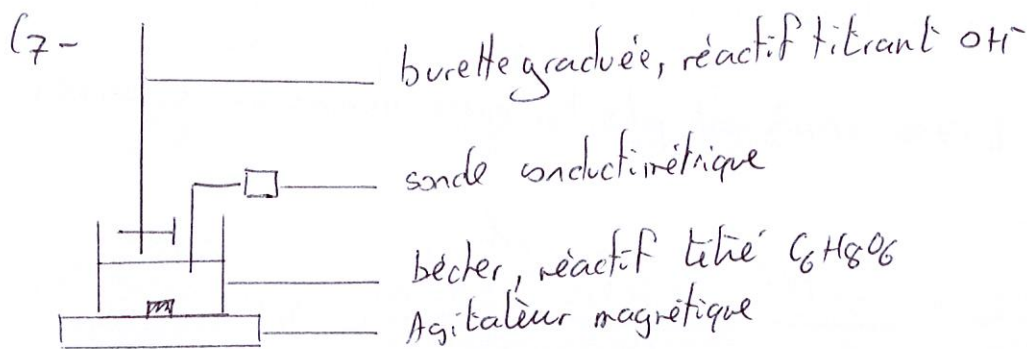 C7-
burette graduée, réactif titrant OH⁻
sonde conductimétrique
bécher, réactif titré C₆H₈O₆
Agitateur magnétique